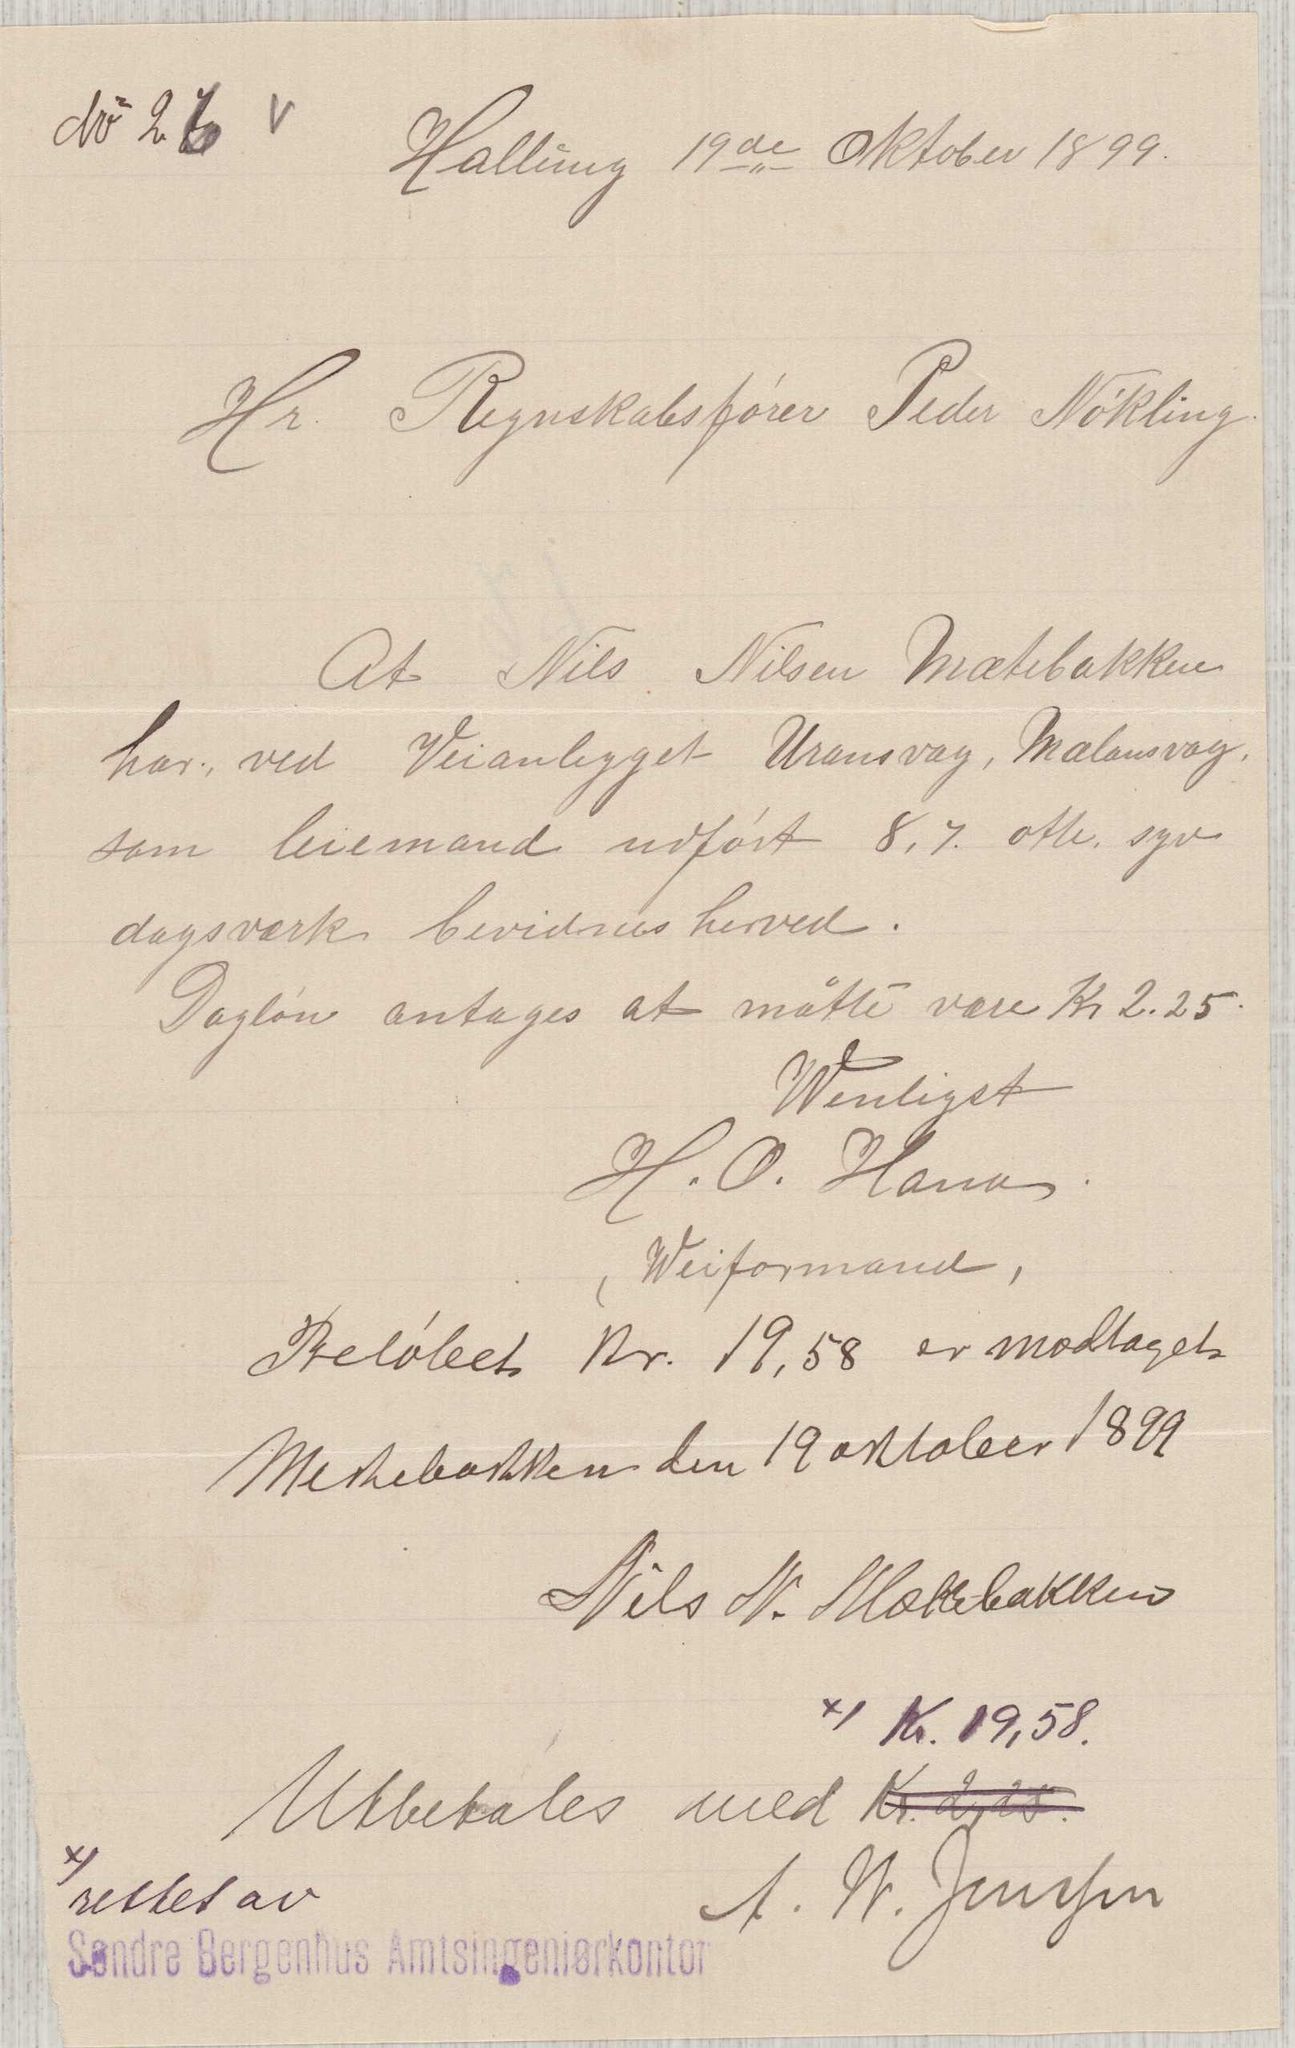 No 26 v
Halling 19de Oktober 1899.
Hr. Regnskabsfører Peder Nökling.
At Nils Nilsen Mætebakken
har, ved Veianlegget Uransvag, Mælansvag,
som leiemand udført 8,7. otte, syv
dagsværk bevidnes herved.
Dagløn antages at måtte være Kr 2.25.
Wenligst
H. O. Hana.
(Weiformand,
Beløbet Kr. 19,58 er modtaget
Metkebakken den 19 oktober 1899
Nils N. Mætkebakken
x) Kr. 19,58.
Utbetales med Kr. 2,25.
A. W. Jensen
x) rettet av
Søndre Bergenhus Amtsingeniørkontor